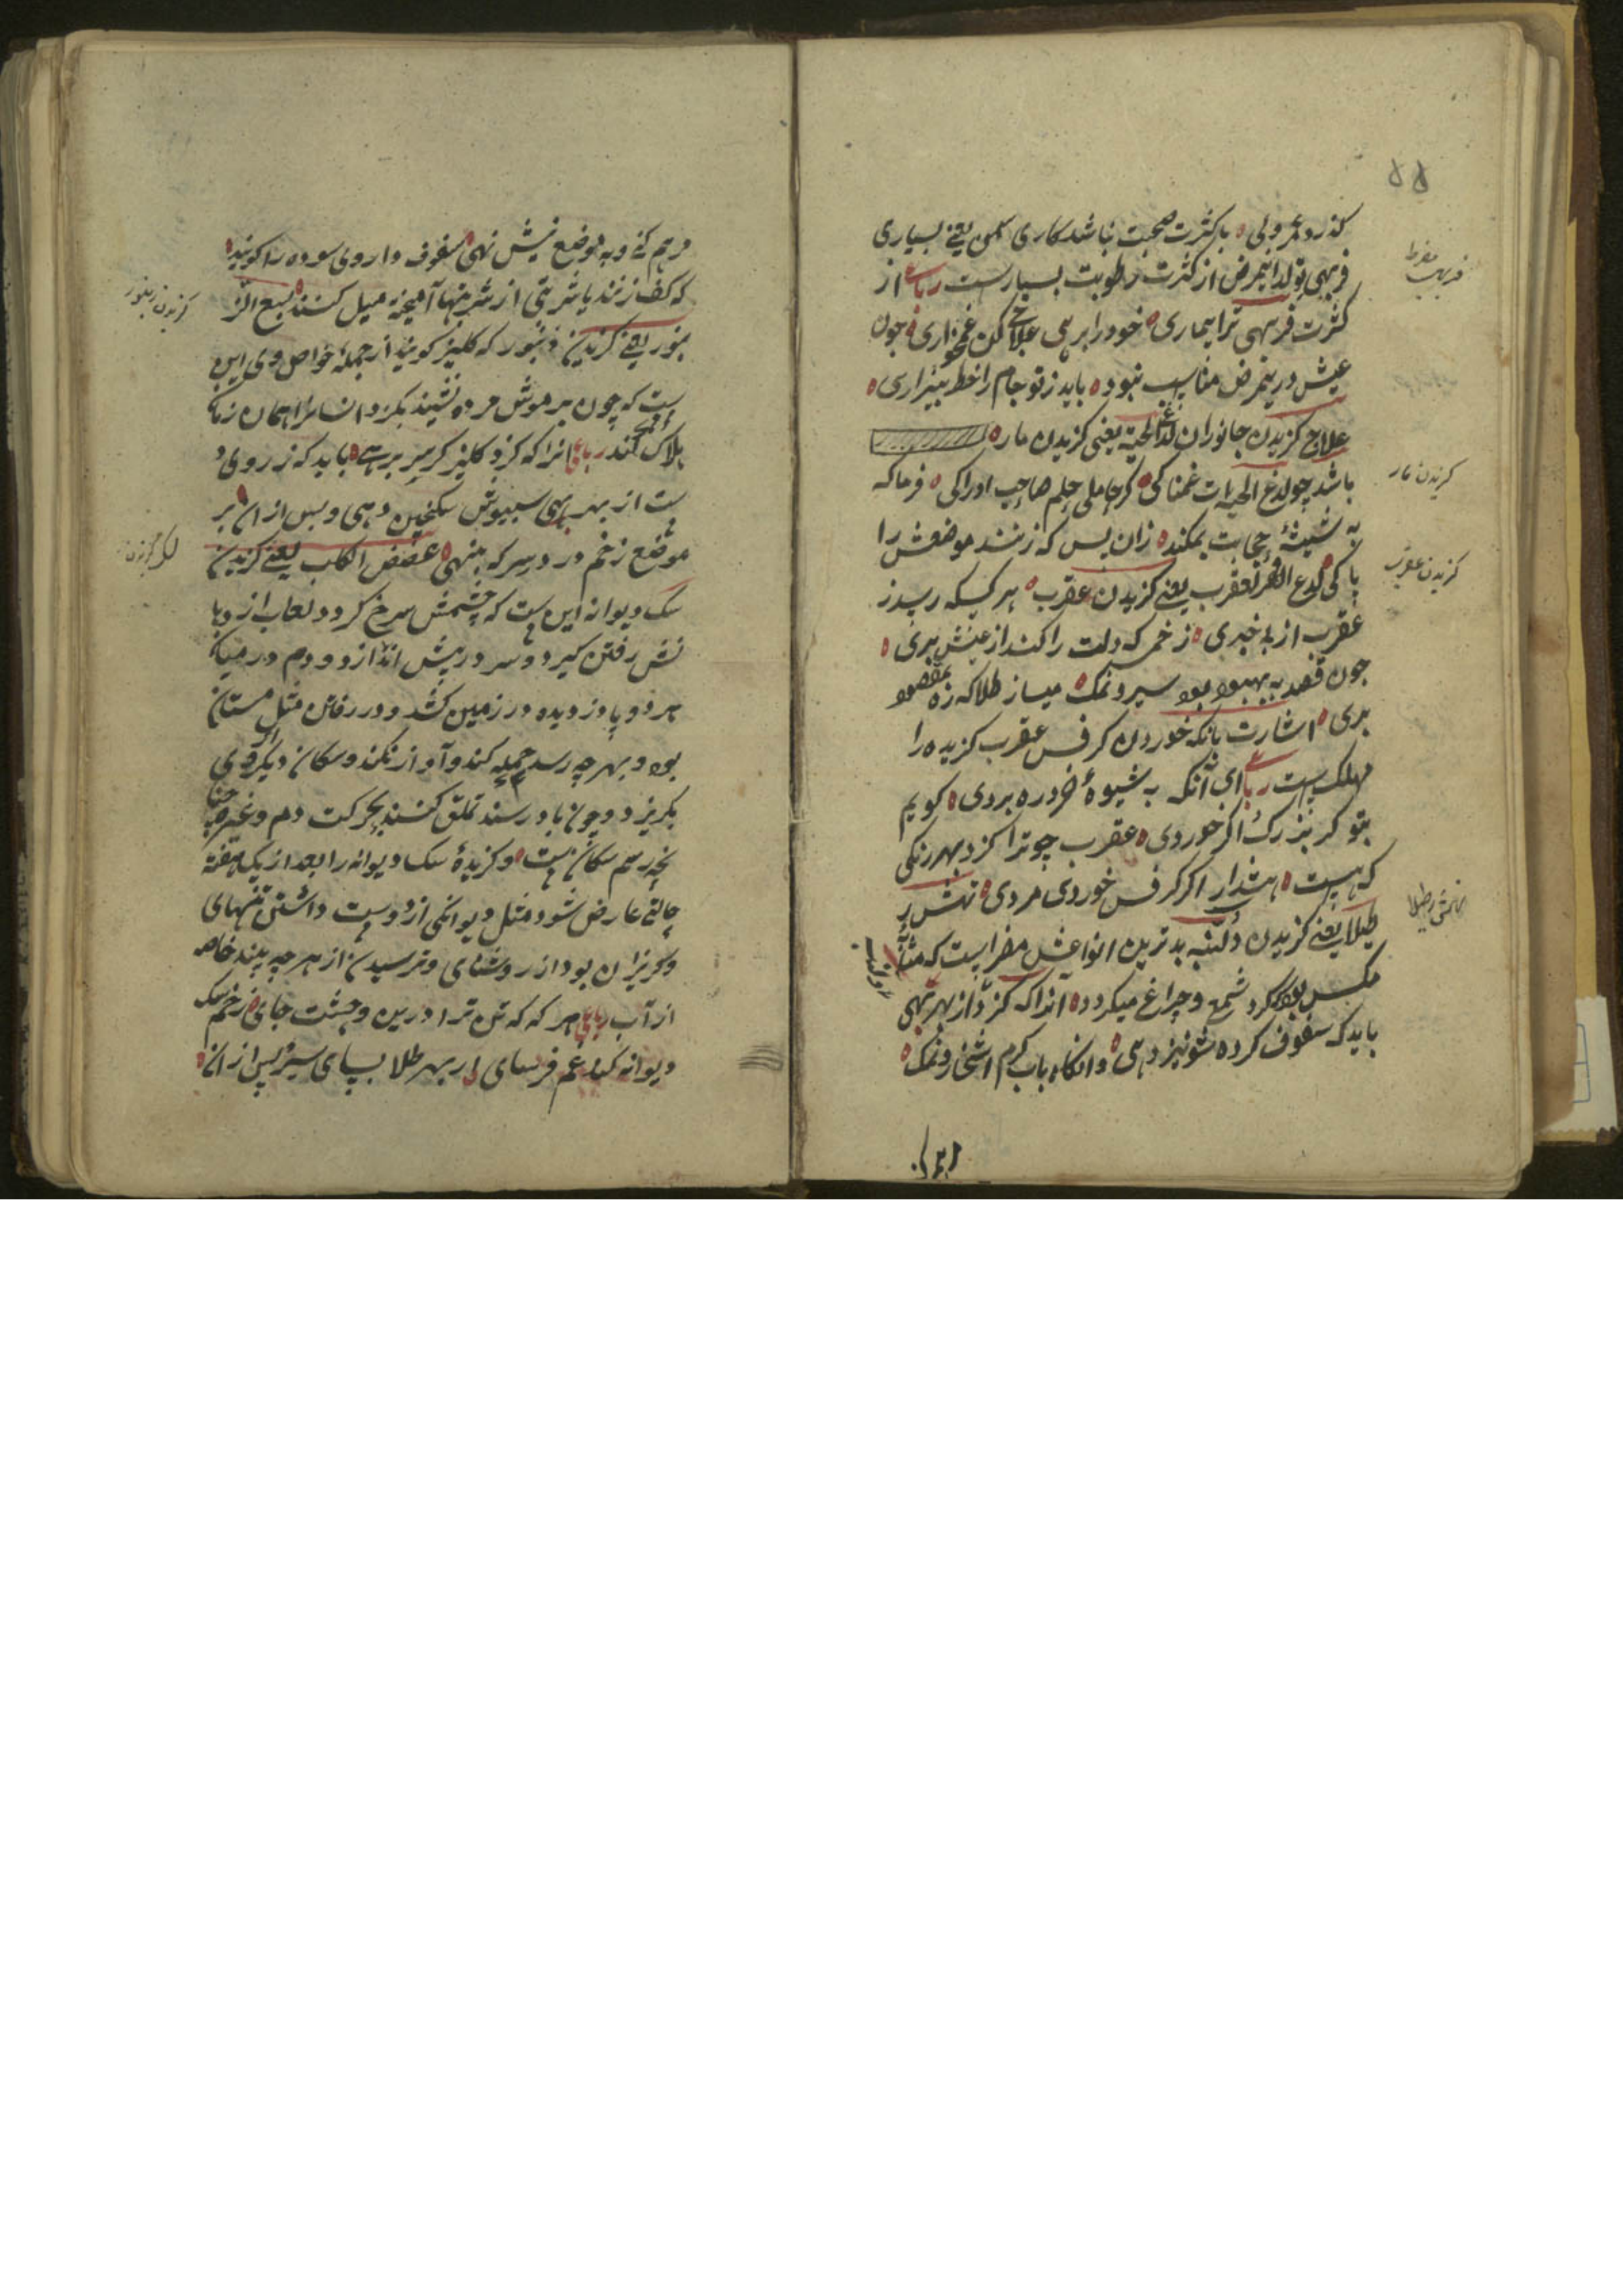 ۵۵
گذرد عمر ولی ه با کثرت صحبت نباشد کاری سمن یعنی بسیاری
فربهی تولد اینمرض از کثرت رطوبت بسیارست رباعی از
کثرت فربهی ترا بیماری ه خود را برسی علاج کن غمخواری ه چون
عیش درینمرض مناسب نبود ه باید ز تو جام را خط بیزاری ه
علاج گزیدن جانوران لدغ الحیة یعنی گزیدن مار ه
باشد چو لدغ الحیات غمناکی ه گر حاملی حلم صاحب ادراکی ه فرما که
به شیشهٔ حجامت بمکند ه زان پس که زنند موضعش را
پاکی ه لدغ العقرب یعنی گزیدن عقرب ه هر کسکه رسد ز
عقرب از بی خبری ه زخمی که دلت را کند از عیش بری ه
چون قصد به بهبود بود سیر و نمک ه میساز طلا که ره بمقصود
بری ه اشارت بانکه خوردن کرفس عقرب گزیده را
مهلک است رباعی ای آنکه به شیوهٔ خرد ره بردی ه گویم
بتو گر بزرگ اگر خوردی ه عقرب چو ترا گزد بهر رنگی
که هست ه هشدار اگر کرفس خوردی مردی ه نهش ر
طیلا یعنی گزیدن دلنبه بدترین انواعش مضر است که مثال
مگس بود گرد شمع و چراغ میگردد ه آنرا که گزد از بهر بهی
باید که سفوف کرده شونیز دهی ه وانگاه باب گرم اشخار و نمک ه
فربهی مفرط
گزیدن مار
گزیدن عقرب
مرهم کنی و به موضع نیش نهی ه سفوف داروی سوده را گویند ه
که کف زنند یا شربتی از شربتها آمیخته میل کنند ه لسع الز
نبور یعنی گزیدن زنبور که کلیز گویند از جملهٔ خواص وی این
ست که چون بر موش مرده نشیند بگزد انسان را همان زمان
هلاک کند رباعی آنرا که گزد کلیز گر سر بر هست ه باید که ز روی د
ست از بهر بهی سبیوش سکنجبین دهی و پس از ان بر
موضع زخم در د سرکه بنهی ه عضض الکلب یعنی گزیدن
سک دیوانه این ست که چشمش سرخ گردد و لعاب از دها
نش رفتن گیرد و سر در پیش اندازد و دم در میان
هر دو پا دزدیده در زمین کشد و در رفتن مثل مستان
بود و بهر چه رسد حمله کند و آواز نکند و سکان دیگر از وی
بگریزد و چون باو رسند تملق کنند بحرکت دم و غیره چنا
نچه رسم سکان است ه و گزیدهٔ سک دیوانه را بعد از یک هفته
حالتی عارض شود مثل دیوانگی از دوست داشتن تنهای
و گریزان بود از روشنای و ترسیدن از هر چه بیند خاصه
از آب رباعی هر که که تن ترا درین وحشت جای ه زخم سک
دیوانه کند غم فرسای ه از بهر طلا بسای سیر و پس از ان ه
گزیدن زنبور